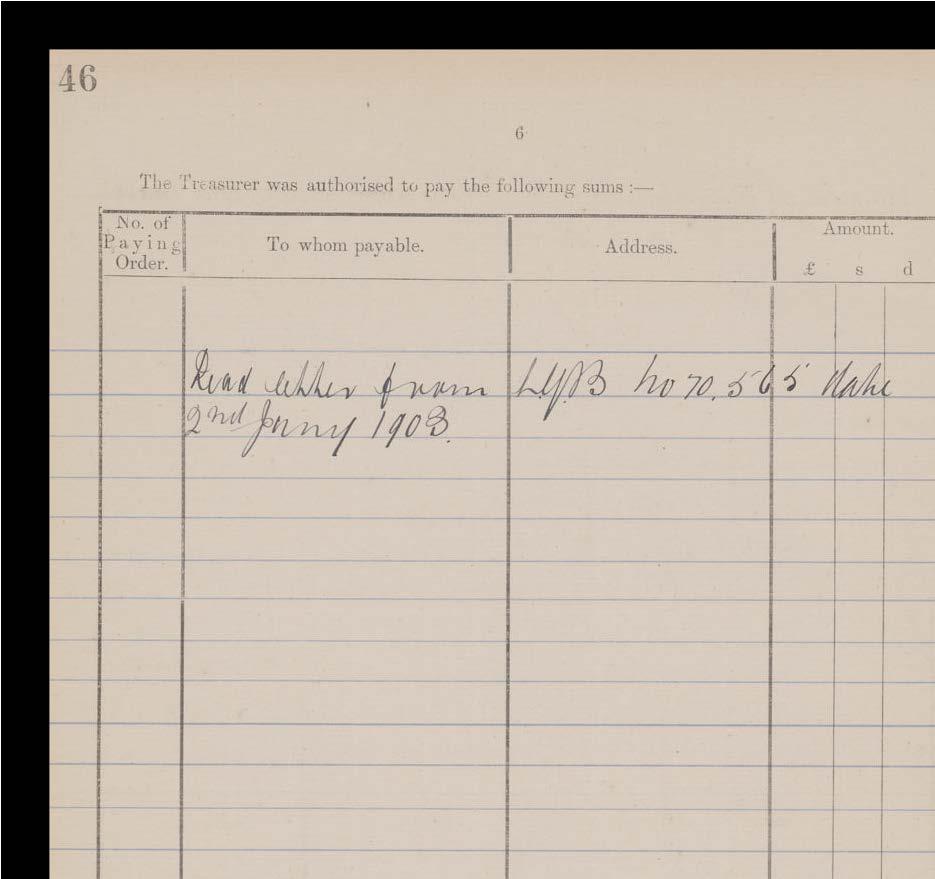 46
6
The Treasurer was authorised to pay the following sums :—
No. of Paying Order.
To whom payable.
Address.
Amount.
£ s d
Read letter from L.G.B No 70,565 date
2nd Jany 1903.